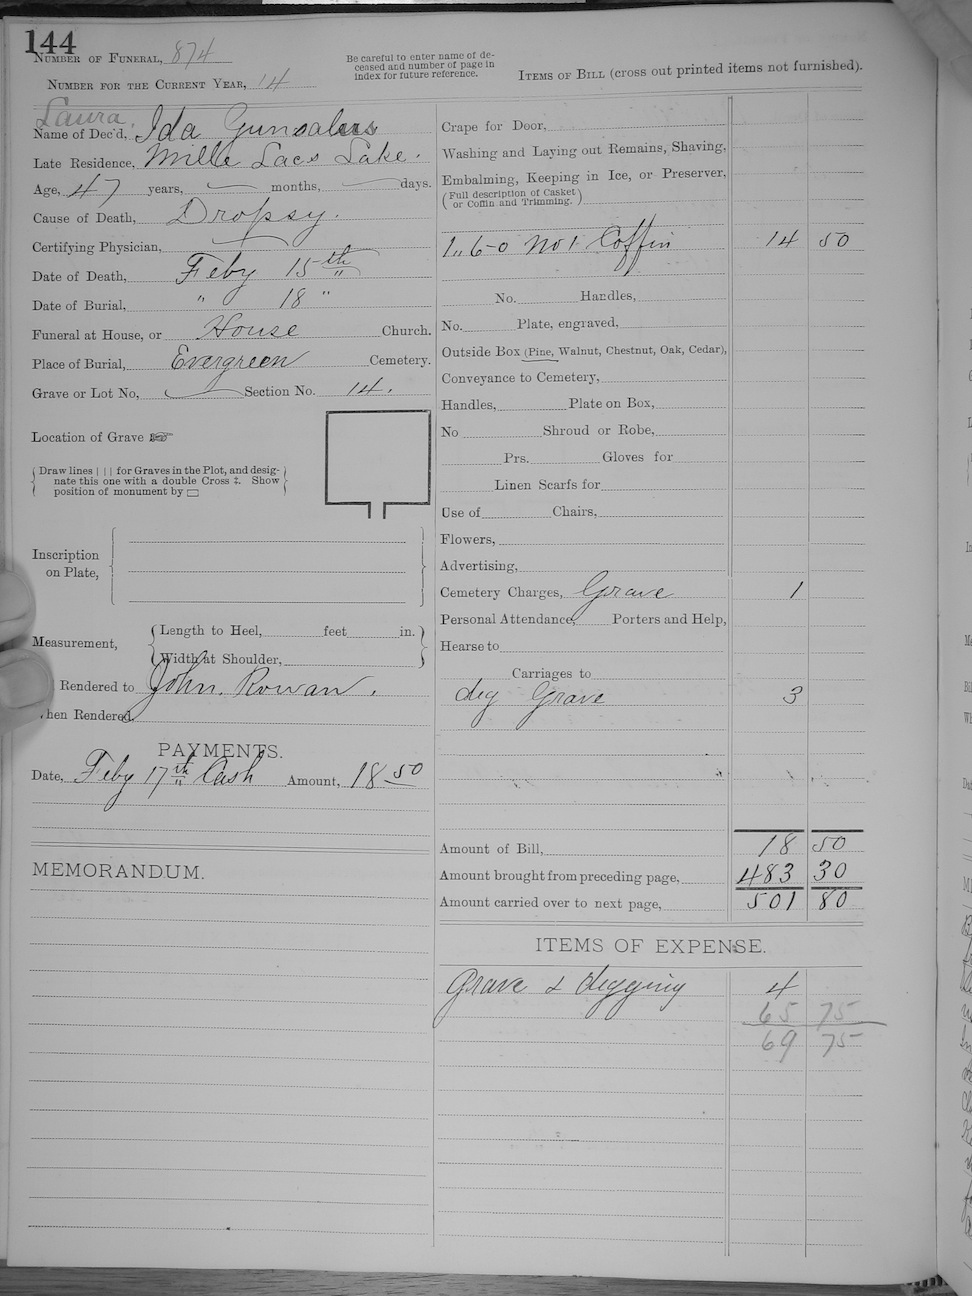 144
Number of Funeral, 874
Number for the Current Year, 14
Be careful to enter name of de-
ceased and number of page in
index for future reference.
Items of Bill (cross out printed items not furnished).
Laura.
Name of Dec'd, Ida Gunsalus
Late Residence, Mille Lacs Lake.
Age, 47 years, months, days.
Cause of Death, Dropsy.
Certifying Physician,
Date of Death, Feby 15th
Date of Burial, " 18 "
Funeral at House, or House Church.
Place of Burial, Evergreen Cemetery.
Grave or Lot No, Section No. 14.
Location of Grave
Draw lines | | | for Graves in the Plot, and desig-
nate this one with a double Cross ‡. Show
position of monument by
Inscription
on Plate,
Measurement,
Length to Heel, feet in.
Width at Shoulder,
Rendered to John. Rowan.
hen Rendered,
PAYMENTS.
Date, Feby 17th Cash Amount, 18 50
MEMORANDUM.
Crape for Door,
Washing and Laying out Remains, Shaving,
Embalming, Keeping in Ice, or Preserver,
(Full description of Casket
or Coffin and Trimming.)
1,, 6-0 No 1 Coffin 14 50
No. Handles,
No. Plate, engraved,
Outside Box (Pine, Walnut, Chestnut, Oak, Cedar),
Conveyance to Cemetery,
Handles, Plate on Box,
No Shroud or Robe,
Prs. Gloves for
Linen Scarfs for
Use of Chairs,
Flowers,
Advertising,
Cemetery Charges, Grave 1
Personal Attendance, Porters and Help,
Hearse to
Carriages to
dig Grave 3
Amount of Bill, 18 50
Amount brought from preceding page, 483 30
Amount carried over to next page, 501 80
ITEMS OF EXPENSE.
Grave & digging 4
65 75
69 75